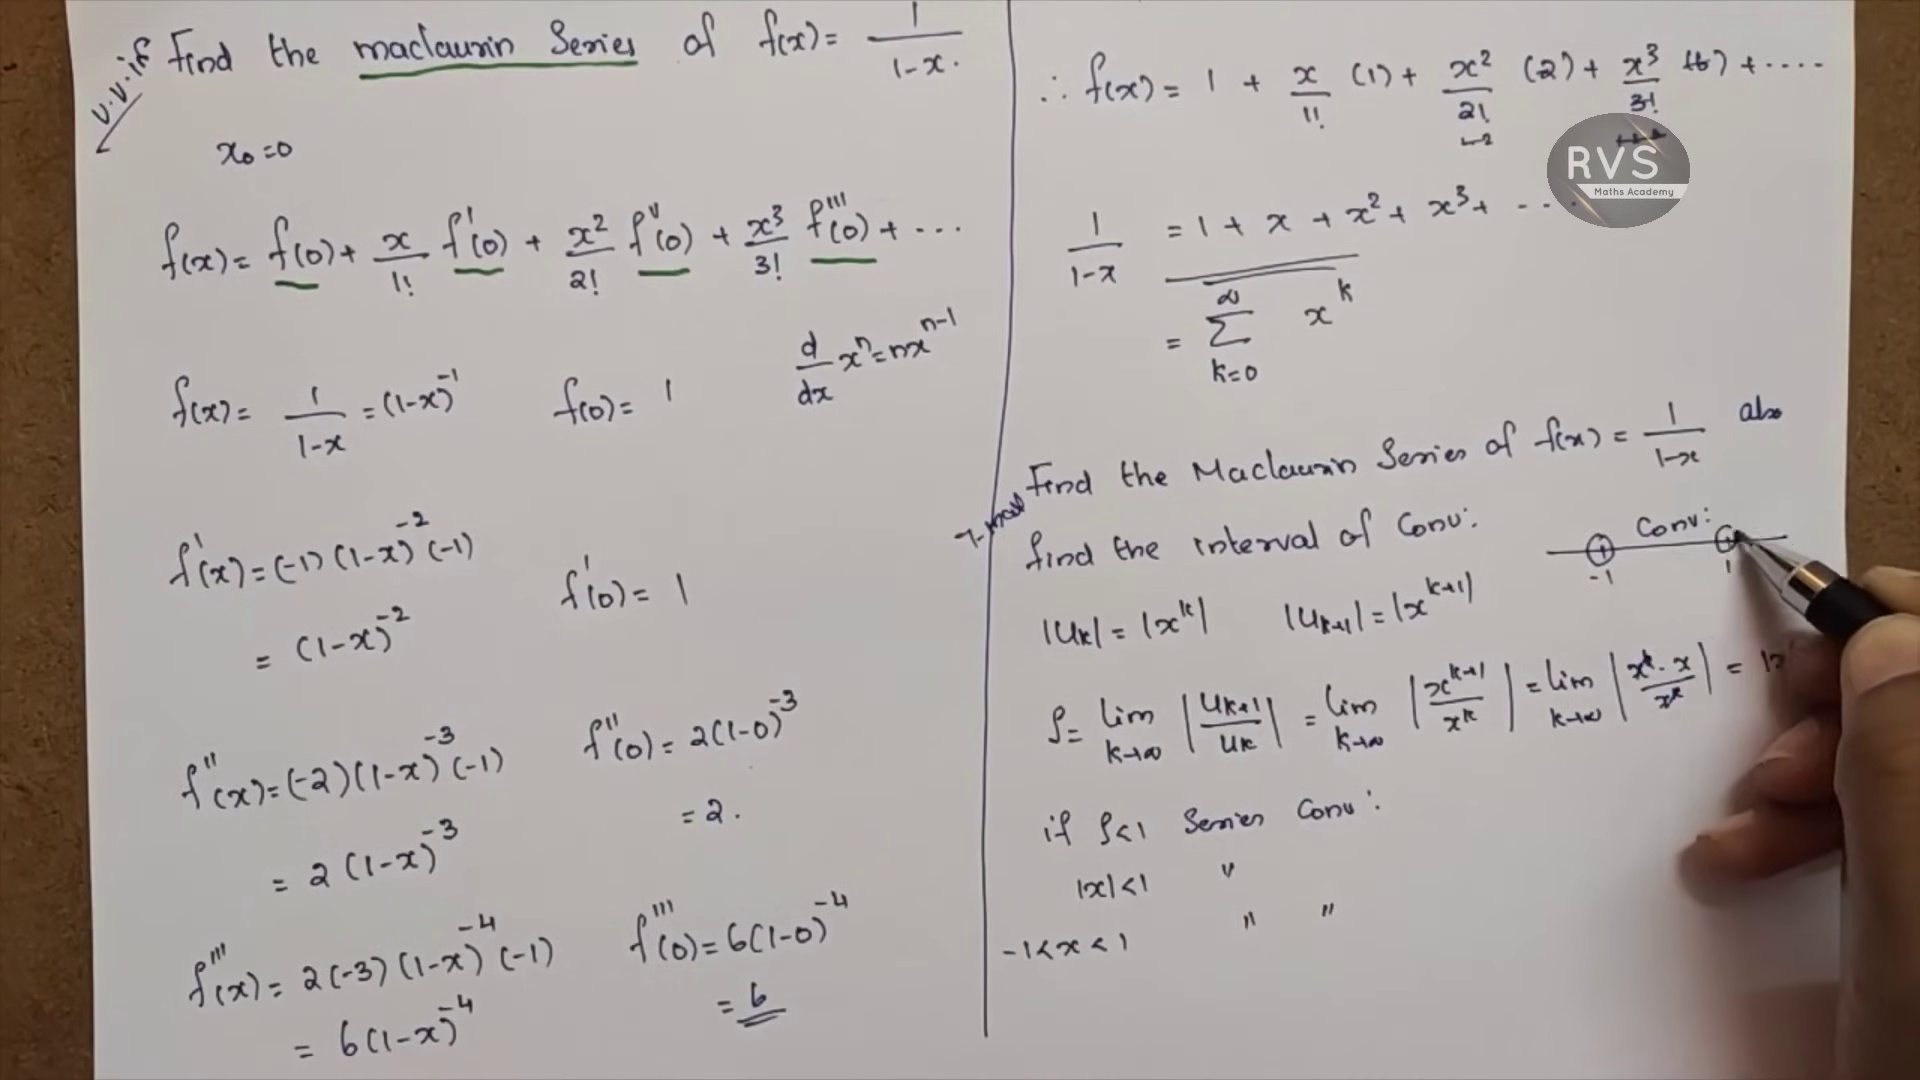 v.v.if Find the maclaurin Series of f(x) = 1/1-x.
x₀=0
f(x) = f(0) + x/1! f'(0) + x²/2! f''(0) + x³/3! f'''(0) + ...
f(x) = 1/1-x = (1-x)⁻¹ f(0) = 1 d/dx xⁿ = nxⁿ⁻¹
f'(x) = (-1)(1-x)⁻²(-1) f'(0) = 1
= (1-x)⁻²
f''(x) = (-2)(1-x)⁻³(-1) f''(0) = 2(1-0)⁻³
= 2(1-x)⁻³ = 2.
f'''(x) = 2(-3)(1-x)⁻⁴(-1) f'''(0) = 6(1-0)⁻⁴
= 6(1-x)⁻⁴ = 6
∴ f(x) = 1 + x/1! (1) + x²/2! (2) + x³/3! (6) + ....
RVS
Maths Academy
1/1-x = 1 + x + x² + x³ + ...
= ∞ Σ k=0 xᵏ
Find the Maclaurin Series of f(x) = 1/1-x also
find the interval of Conv:
Conv:
-1 1
|Uₖ| = |xᵏ| |Uₖ₊₁| = |xᵏ⁺¹|
ρ = lim k→∞ |Uₖ₊₁/Uₖ| = lim k→∞ |xᵏ⁺¹/xᵏ| = lim k→∞ |xᵏ.x/xᵏ| =
if ρ<1 Series Conv:
|x|<1 "
-1<x<1 " "